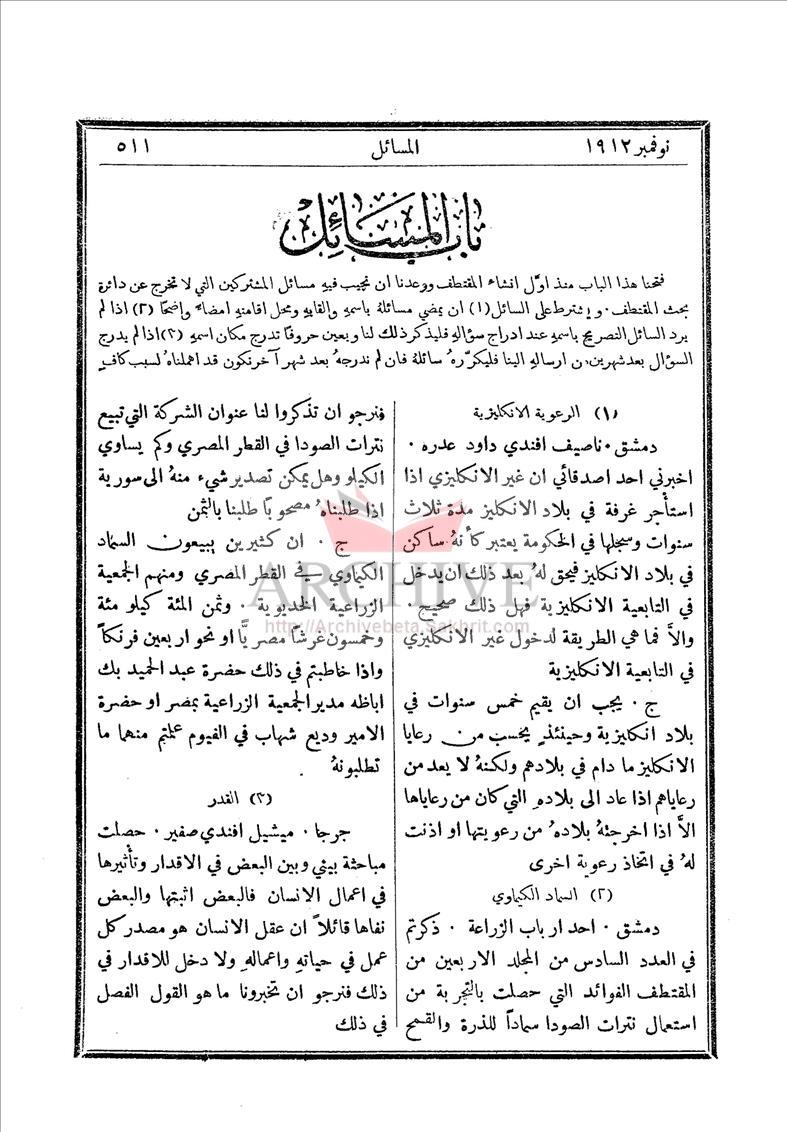 نوفمبر ١٩١٢
المسائل
٥١١
باب المسائل
فتحنا هذا الباب منذ اوّل انشاء المقتطف ووعدنا ان نجيب فيهِ مسائل المشتركين التي لا تخرج عن دائرة
بحث المقتطف . ويشترط على السائل (١) ان يمضي مسائلهُ باسمهِ والقابهِ ومحل اقامتهِ امضاءً واضحاً (٢) اذا لم
يرد السائل التصريح باسمهِ عند ادراج سؤالهِ فليذكر ذلك لنا ويعين حروفاً تدرج مكان اسمهِ (٣) اذا لم يدرج
السؤال بعد شهرين من ارسالهِ الينا فليكرّرهُ سائلهُ فان لم ندرجهُ بعد شهر آخر نكون قد اهملناهُ لسبب كافٍ
(١) الرعوية الانكليزية
دمشق . ناصيف افندي داود عدره .
اخبرني احد اصدقائي ان غير الانكليزي اذا
استأجر غرفة في بلاد الانكليز مدة ثلاث
سنوات وسجلها في الحكومة يعتبر كأنهُ ساكن
في بلاد الانكليز فيحق لهُ بعد ذلك ان يدخل
في التابعية الانكليزية فهل ذلك صحيح .
والاَّ فما هي الطريقة لدخول غير الانكليزي
في التابعية الانكليزية
ج . يجب ان يقيم خمس سنوات في
بلاد انكليزية وحينئذٍ يحسب من رعايا
الانكليز ما دام في بلادهم ولكنهُ لا يعد من
رعاياهم اذا عاد الى بلادهِ التي كان من رعاياها
الاَّ اذا اخرجتهُ بلادهُ من رعويتها او اذنت
لهُ في اتخاذ رعوية اخرى
(٢) السماد الكيماوي
دمشق . احد ارباب الزراعة . ذكرتم
في العدد السادس من المجلد الاربعين من
المقتطف الفوائد التي حصلت بالتجربة من
استعمال نترات الصودا سماداً للذرة والقمح
فنرجو ان تذكروا لنا عنوان الشركة التي تبيع
نترات الصودا في القطر المصري وكم يساوي
الكيلو وهل يمكن تصدير شيء منهُ الى سورية
اذا طلبناهُ مصحوباً طلبنا بالثمن
ج . ان كثيرين يبيعون السماد
الكيماوي في القطر المصري ومنهم الجمعية
الزراعية الخديوية . وثمن المئة كيلو مئة
وخمسون غرشاً مصريًّا او نحو اربعين فرنكاً
واذا خاطبتم في ذلك حضرة عبد الحميد بك
اباظه مدير الجمعية الزراعية بمصر او حضرة
الامير وديع شهاب في الفيوم علمتم منهما ما
تطلبونهُ
(٣) القدر
جرجا . ميشيل افندي صفير . حصلت
مباحثة بيني وبين البعض في الاقدار وتأثيرها
في اعمال الانسان فالبعض اثبتها والبعض
نفاها قائلاً ان عقل الانسان هو مصدر كل
عمل في حياتهِ واعمالهِ ولا دخل للاقدار في
ذلك فنرجو ان تخبرونا ما هو القول الفصل
في ذلك
ARCHIVE
http://Archivebeta.Sakhrit.com